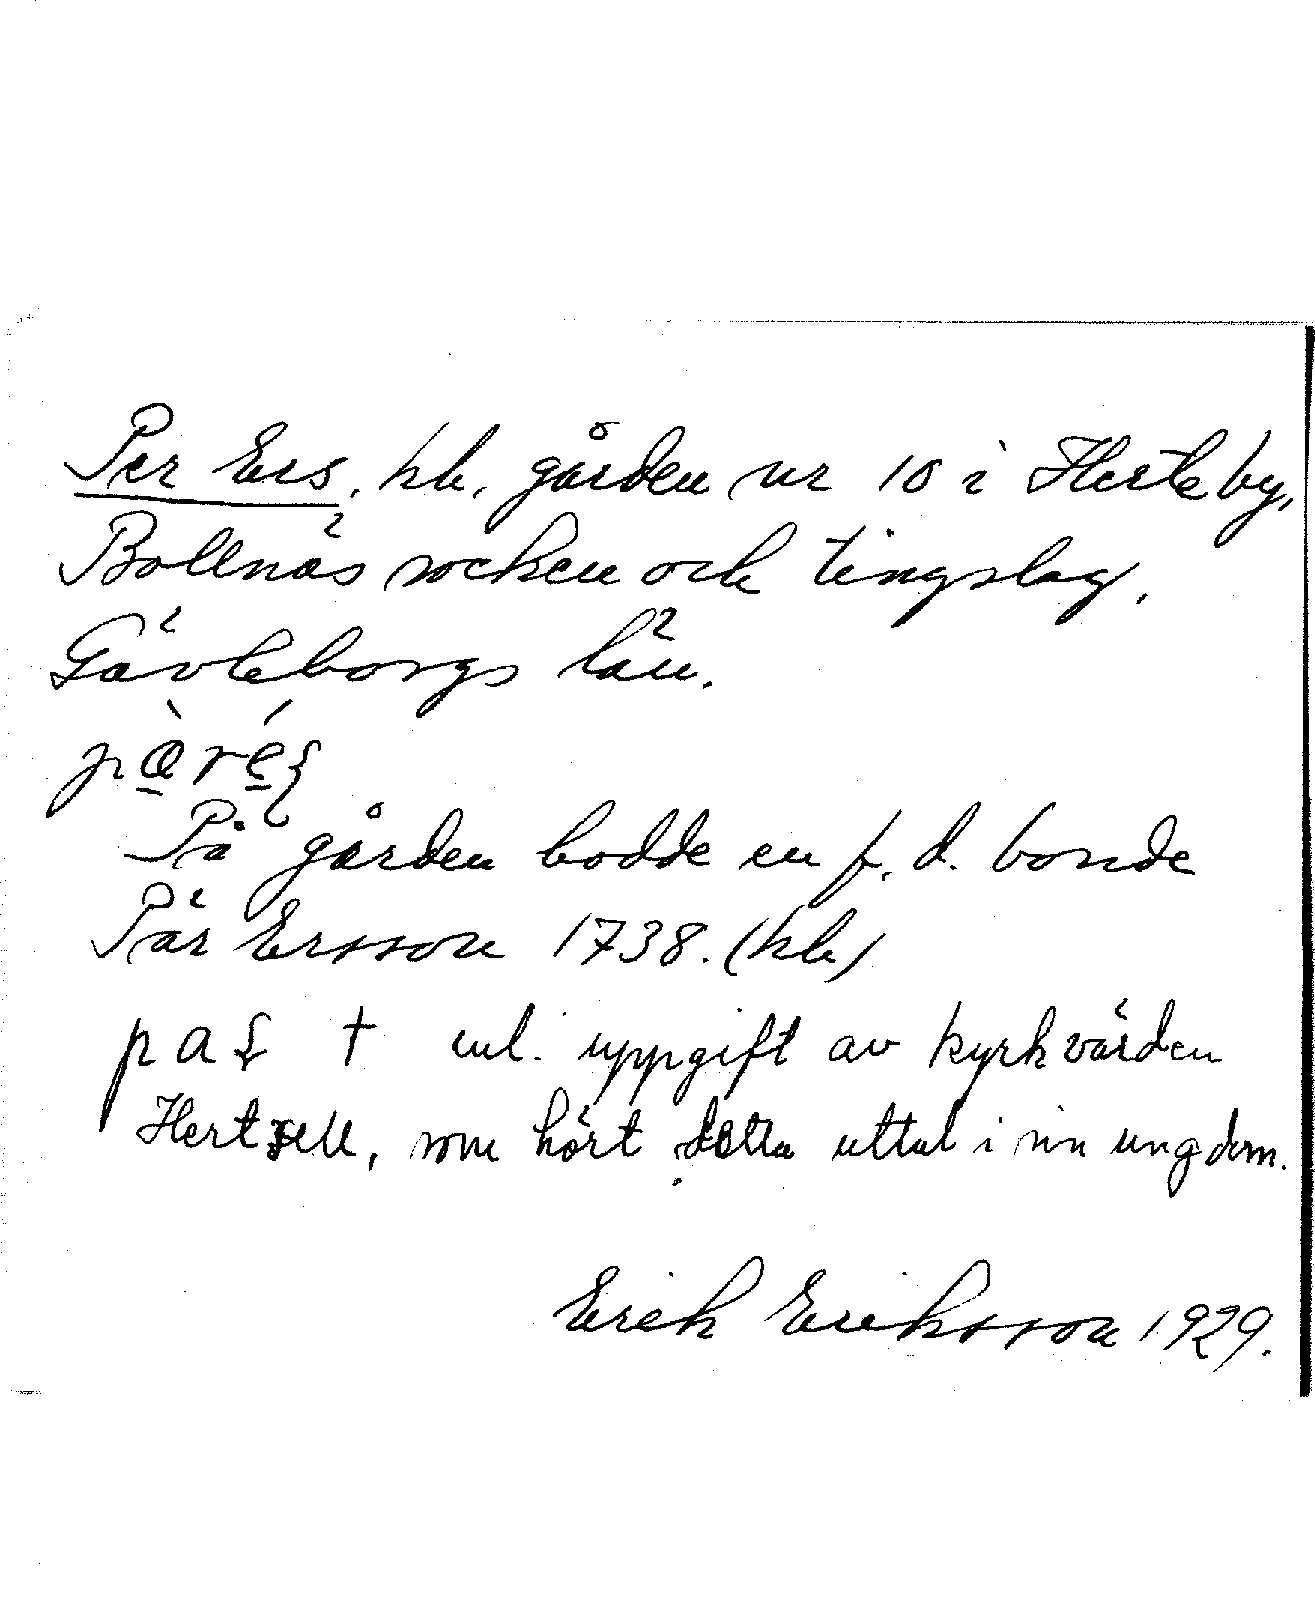 Per Ers, hb, gården nr 10 i Herte by,
Bollnäs socken och tingslag,
Gävleborgs län.
På gården bodde en f. d. bonde
Pär Ersson 1738. (hb)
enl. uppgift av kyrkvärden
Hertzell, som hört detta uttal i sin ungdom.
Erik Eriksson 1929.